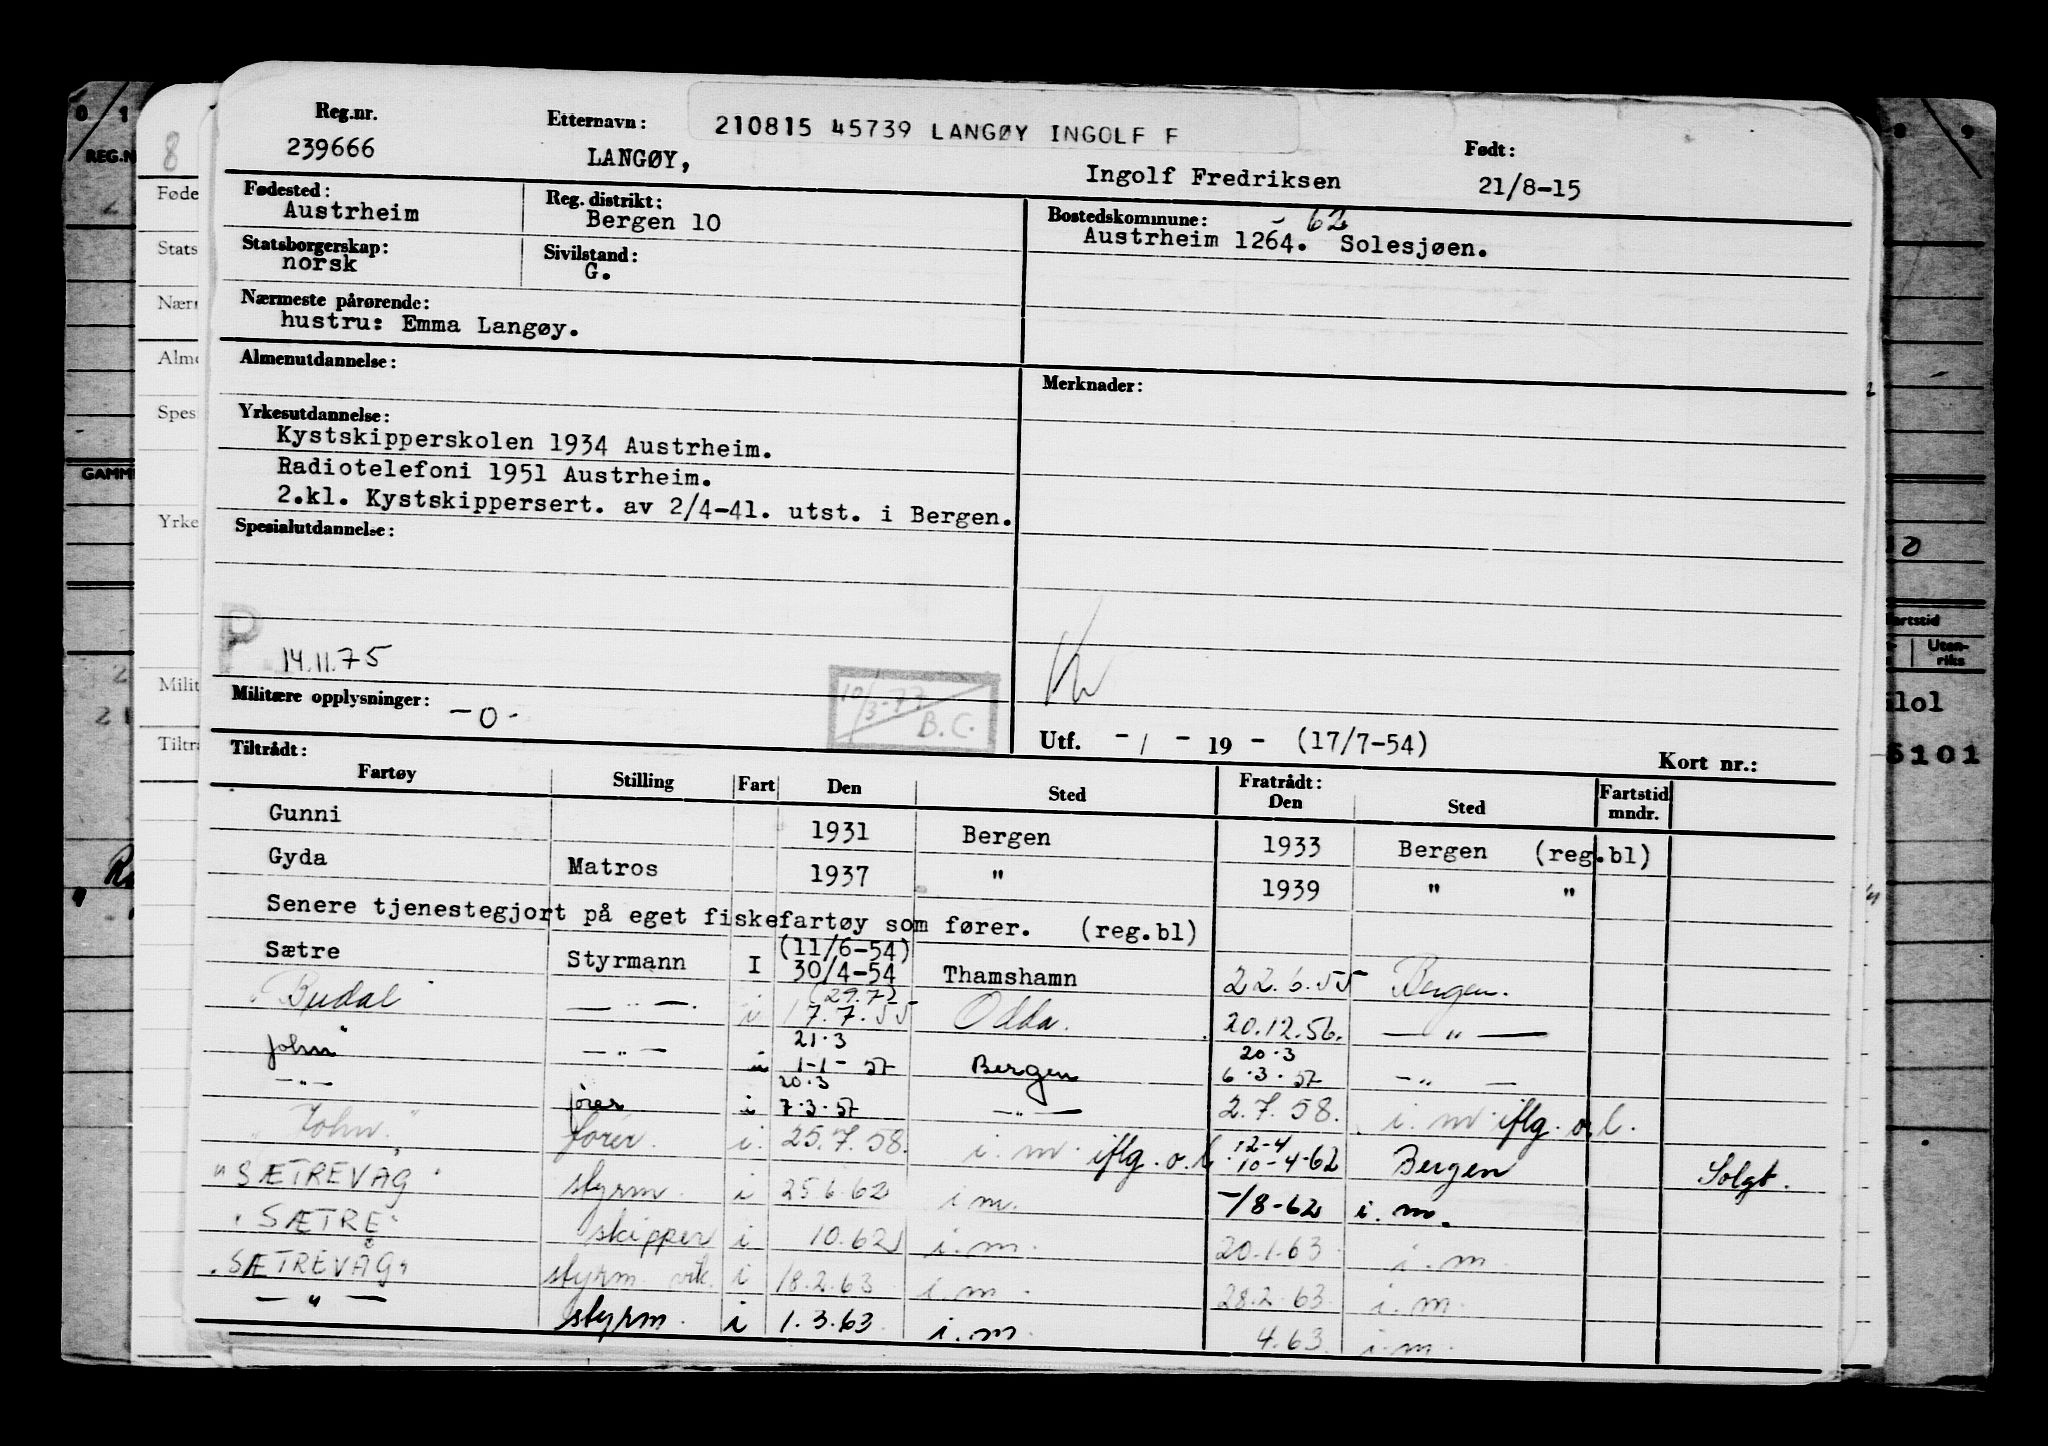 Reg.nr. Etternavn: 210815 45739 LANGØY INGOLF F Født:
239666 LANGØY, Ingolf Fredriksen 21/8-15
Fødested: Reg. distrikt: Bostedskommune: - 62
Austrheim Bergen 10 Austrheim 1264. Solesjøen.
Statsborgerskap: Sivilstand:
norsk G.
Nærmeste pårørende:
hustru: Emma Langøy.
Almenutdannelse: Merknader:
Yrkesutdannelse:
Kystskipperskolen 1934 Austrheim.
Radiotelefoni 1951 Austrheim.
2.kl. Kystskippersert. av 2/4-41. utst. i Bergen.
Spesialutdannelse:
P. 14.11.75
Militære opplysninger: -0- 10/3-77 B.C.
Utf. - / - 19 - (17/7-54) Kort nr.:
Tiltrådt: Fratrådt:
Fartøy Stilling Fart Den Sted Den Sted Fartstid mndr.
Gunni 1931 Bergen 1933 Bergen (reg.bl)
Gyda Matros 1937 " 1939 " "
Senere tjenestegjort på eget fiskefartøy som fører. (reg.bl)
(11/6-54)
Sætre Styrmann I 30/4-54 Thamshamn 22.6.55 Bergen.
(29.7)
"Budal" — " — i 17.7.55 Odda. 20.12.56. — " —
21.3 20.3
"John" — " — i 1-1-57 Bergen 6.3.57 — " —
20.3
— " — fører i 7.3.57 — " — 2.7.58. i.m. iflg. o.l.
12-4
"John" fører. i. 25.7.58. i.m. iflg. o.l. 10-4-62 Bergen Solgt.
"SÆTREVÅG" styrm. i 25.6.62 i m. -/8-62 i. m.
"SÆTRE" skipper i 10.62 i.m. 20.1.63 i.m.
"SÆTREVÅG" styrm. vik. i 18.2.63 i.m. 28.2.63. i.m.
— " — styrm. i 1.3.63. i.m. 4.63. i.m.